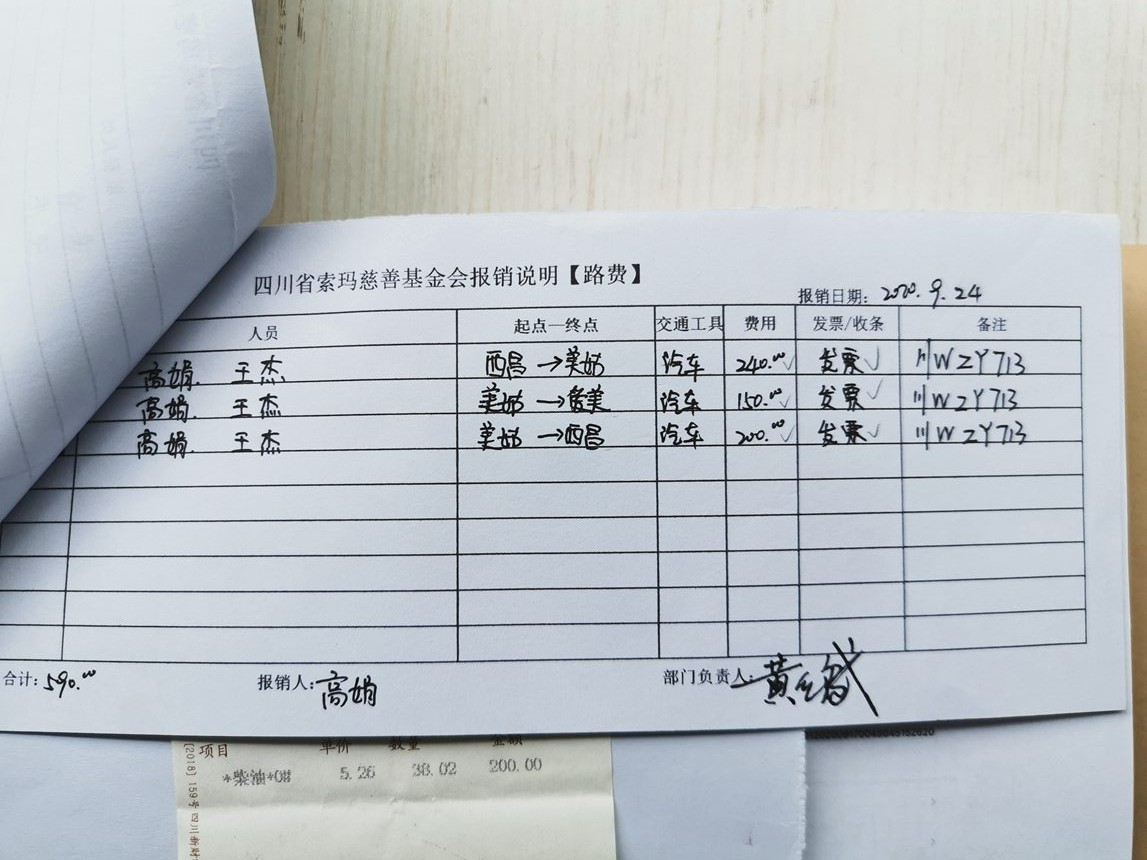 四川省索玛慈善基金会报销说明【路费】
报销日期：2020.9.24
人员 起点—终点 交通工具 费用 发票/收条 备注
高娟. 王杰 西昌→美姑 汽车 240.00✓ 发票✓ 川WZY713
高娟. 王杰 美姑→ 汽车 150.00✓ 发票✓ 川WZY713
高娟. 王杰 美姑→西昌 汽车 200.00✓ 发票✓ 川WZY713
合计：590.00 报销人：高娟 部门负责人：黄
项目 单价 数量 金额
*柴油*0# 5.26 38.02 200.00
[2018] 159号四川新财